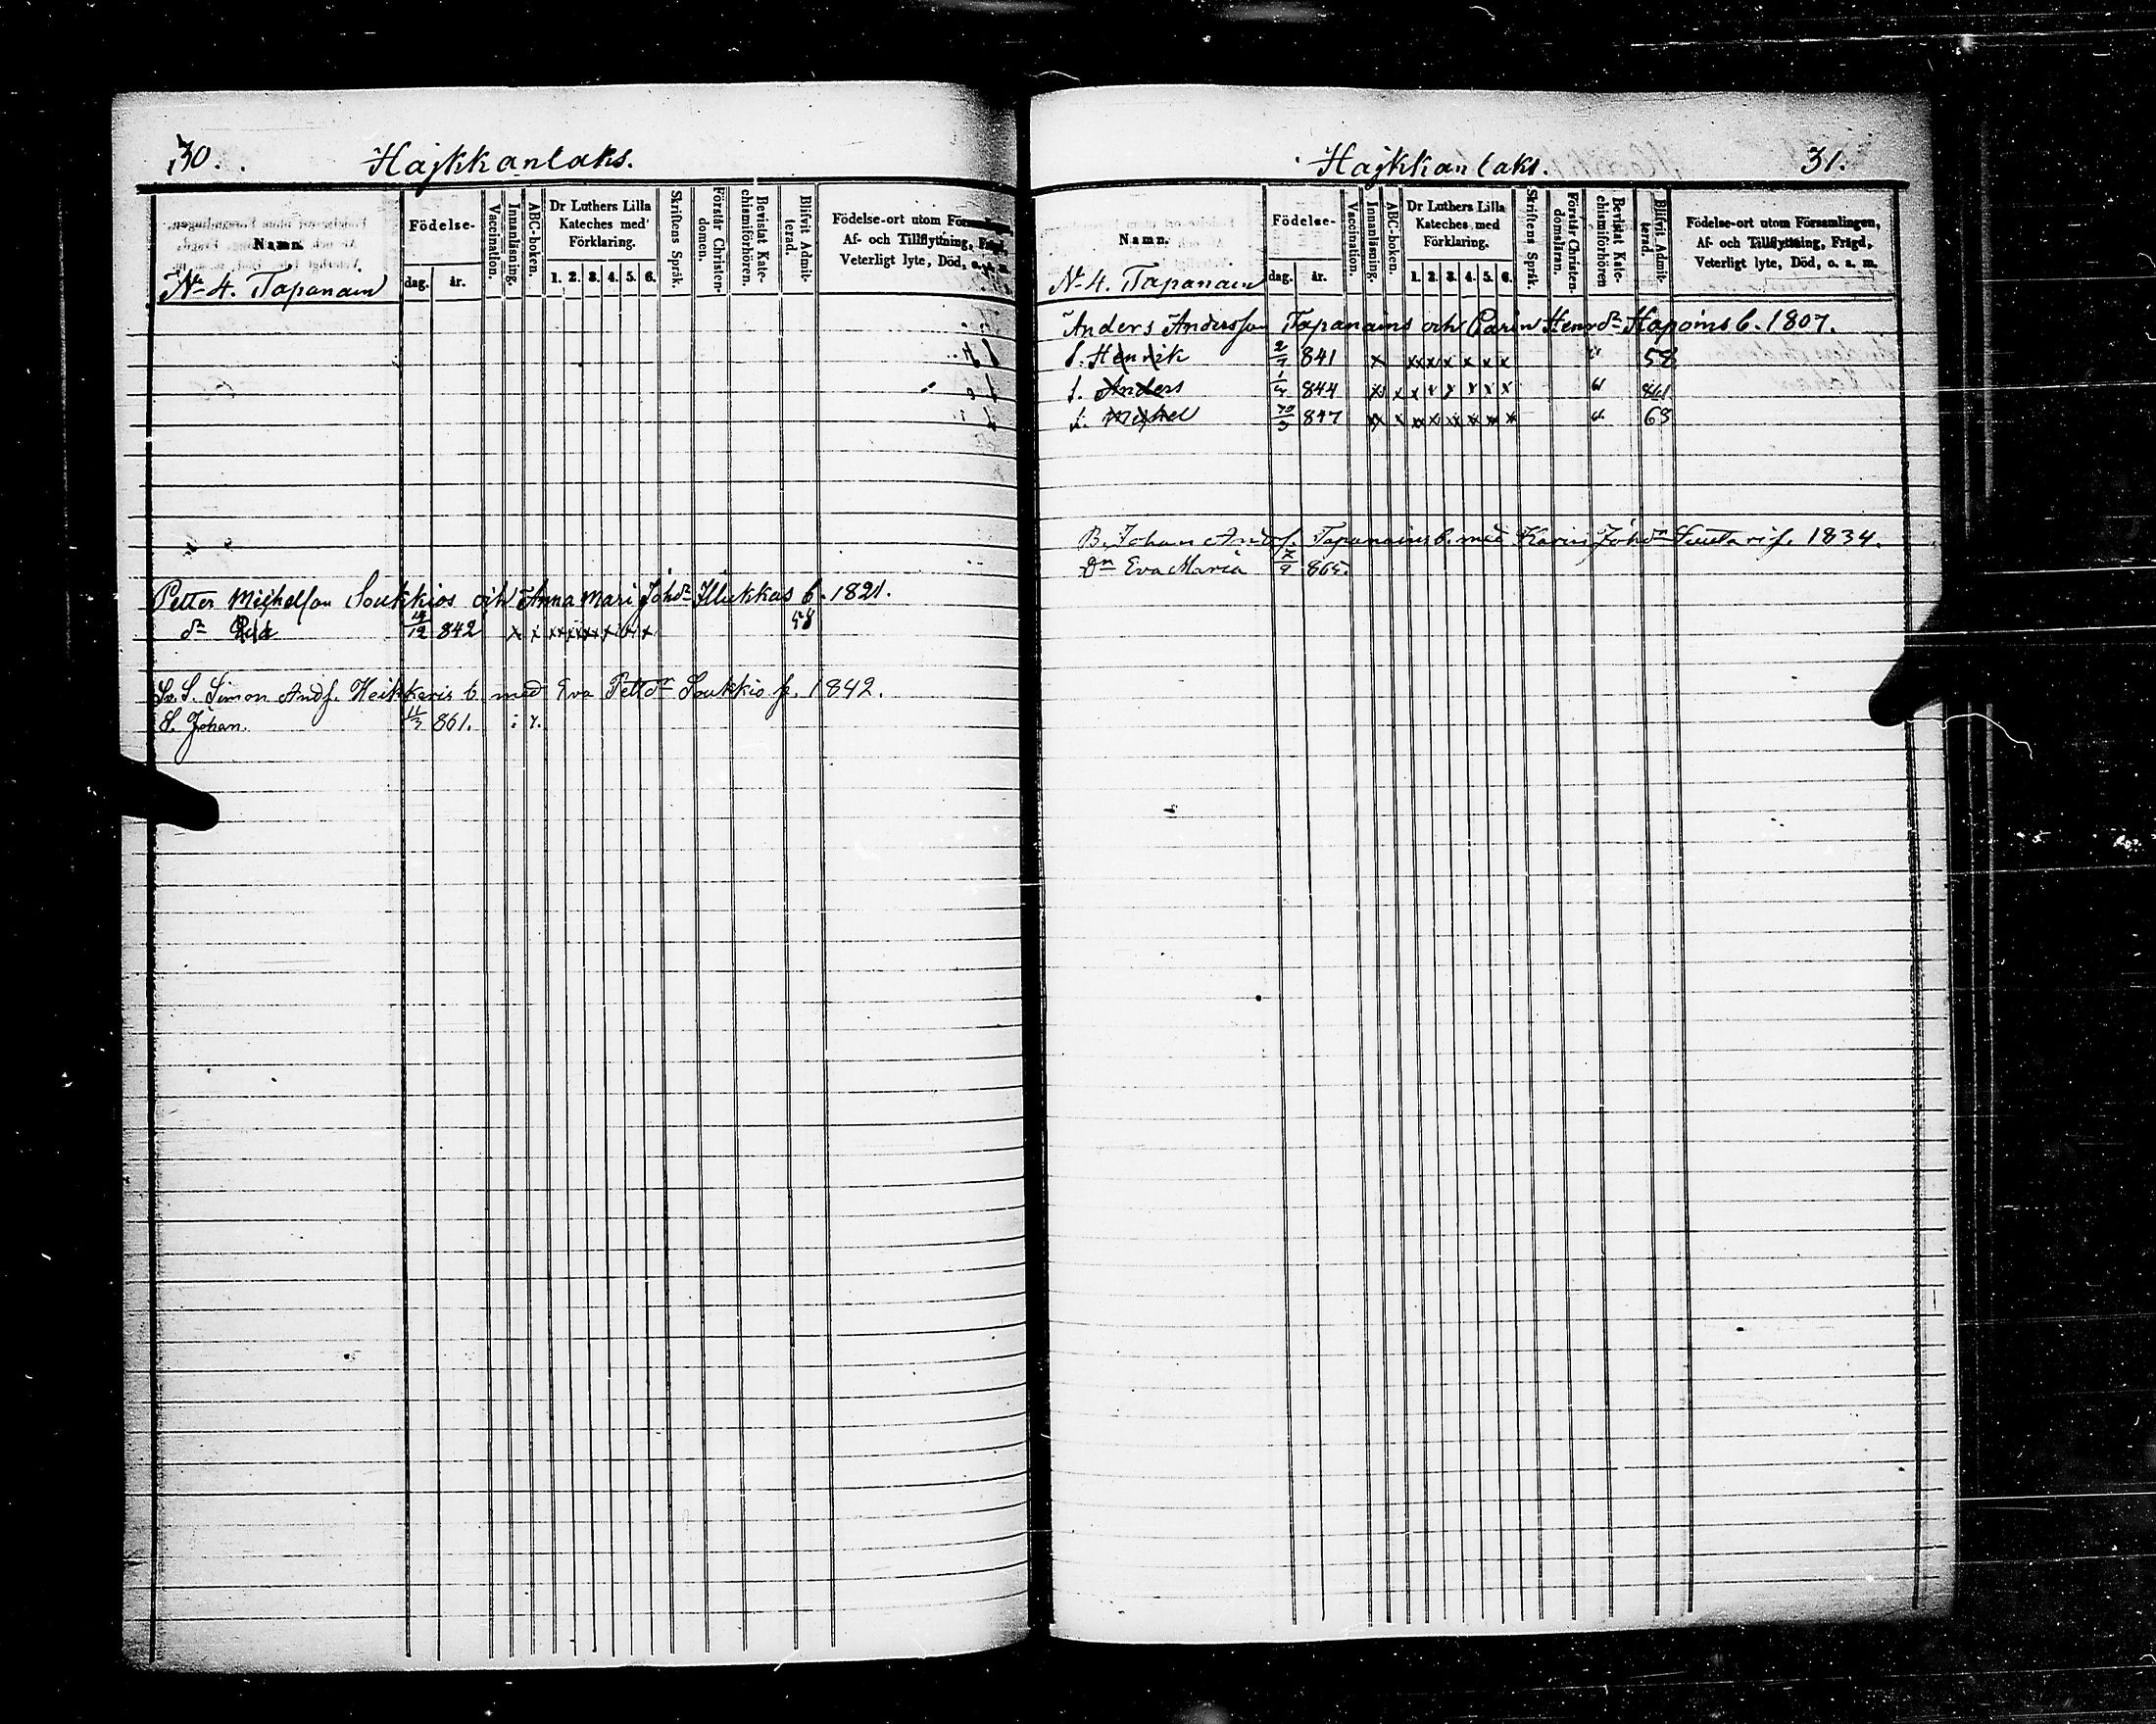 30.
Hajkkanlaks.
Namn.
Födelse-
dag.
år.
Vaccination.
Innanläsning.
ABC-boken.
Dr Luthers Lilla Kateches med Förklaring.
1. 2. 3. 4. 5. 6.
Skriftens Språk.
Förstår Christen-domen.
Bevistat Kate-chismiförhören.
Blifvit Admit-terad.
Födelse-ort utom Församlingen,
Af- och Tillflyttning, Frägd,
Veterligt lyte, Död, o. a. m.
No 4. Tapanain
Petter Michelson Soukkios och Anna Mari Johdr Illukkas b. 1821.
dr 12 842 x x x x x x x x 58
Simon Ands. Heikkeris b. med Eva Pettdr Soukkio f. 1842.
S. Johan. 11/3 861.
Hajkkanlaks.
31.
Namn.
Födelse-
dag.
år.
Vaccination.
Innanläsning.
ABC-boken.
Dr Luthers Lilla Kateches med Förklaring.
1. 2. 3. 4. 5. 6.
Skriftens Språk.
Förstår Christen-domsläran.
Bevistat Kate-chismiförhören
Blifvit Admit-terad.
Födelse-ort utom Församlingen,
Af- och Tillflyttning, Frägd,
Veterligt lyte, Död, o. a. m.
No 4. Tapanain
Anders Andersson Tapanains och Carin Henrdr Hapoins b. 1807.
s. Henrik 2/7 841 x x x x x x x " 58
s. Anders 844 x x x x x x x x "
s. Michel 847 x x x x x x x x " 63
B. Johan Ands. Tapanains b. med Karin Johdr f. 1834.
Dr Eva Maria 865.